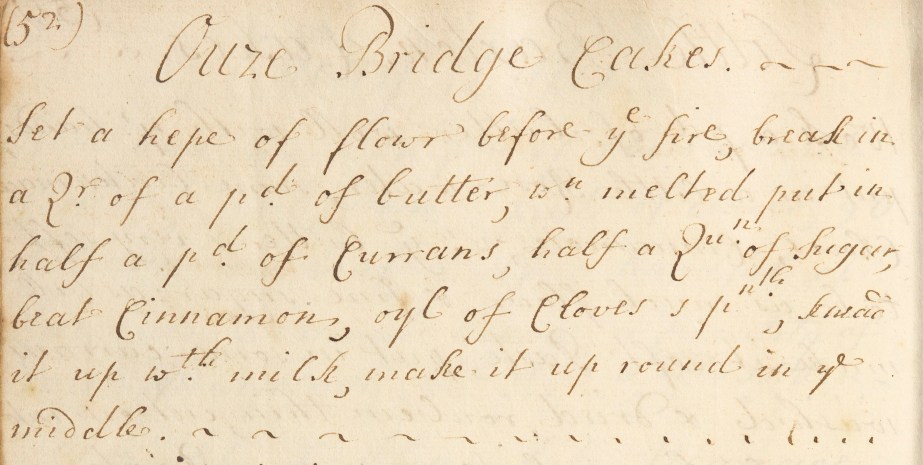 (52)
Ouze Bridge Cakes.
Set a hepe of flowr before yᵉ fire, break in
a Qʳ. of a pᵈ. of butter, wⁿ melted put in
half a pᵈ. of Currans, half a of Sugar,
beat Cinnamon, oyl of Cloves knead
it up wᵗʰ. milk, make it up round in yᵉ
middle.